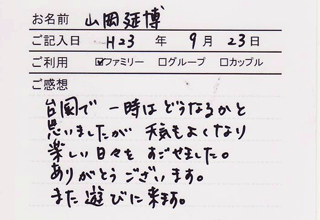 お名前 山岡延博
ご記入日 H23 年 9月 23日
ご利用 ☑ファミリー □グループ □カップル
ご感想
台風で 一時は どうなるかと
思いましたが 天気もよくなり
楽しい日々を すごせました。
ありがとうございます。
また 遊びに来ます。